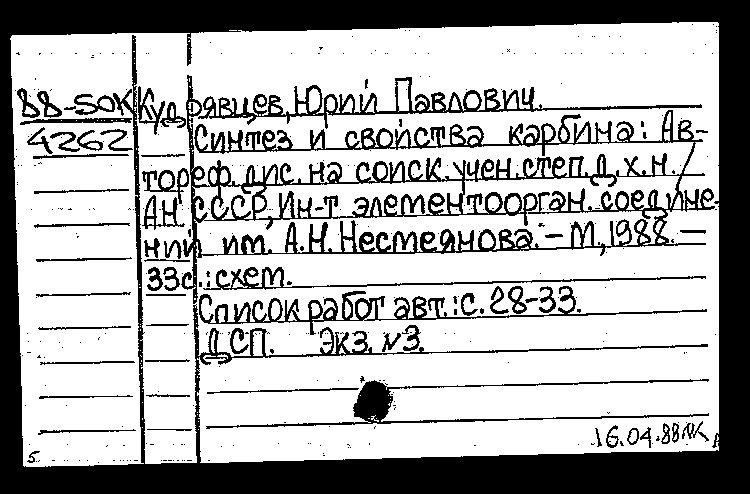 88-50К Кудрявцев, Юрий Павлович.
4262 Синтез и свойства карбина: Ав-
тореф. дис. на соиск. учен. степ. д. х. н. /
АН СССР, Ин-т элементоорган. соедине-
ний им. А. Н. Несмеянова. - М., 1988. -
33с.: схем.
Список работ авт.: с. 28-33.
ДСП. Экз. №3.
16.04.88
5.